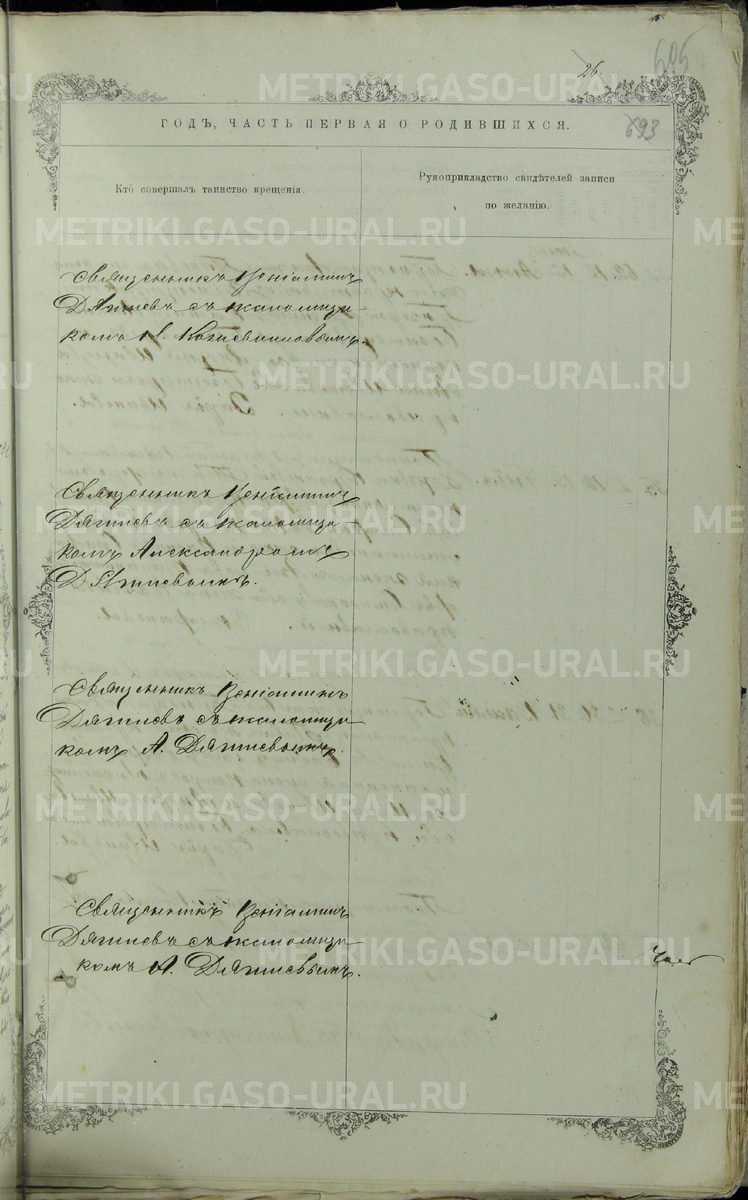 26.
605
693
ГОДЪ, ЧАСТЬ ПЕРВАЯ О РОДИВШИХСЯ.
Кто совершалъ таинство крещенія.
Рукоприкладство свидѣтелей записи
по желанію.
Священникъ Веніаминъ
Дягилевъ съ псаломщи-
комъ
Священникъ Веніаминъ
Дягилевъ съ псаломщи-
комъ Александромъ
Дягилевымъ.
Священникъ Веніаминъ
Дягилевъ съ псаломщи-
комъ А. Дягилевымъ.
Священникъ Веніаминъ
Дягилевъ съ псаломщи-
комъ А. Дягилевымъ.
METRIKI.GASO-URAL.RU